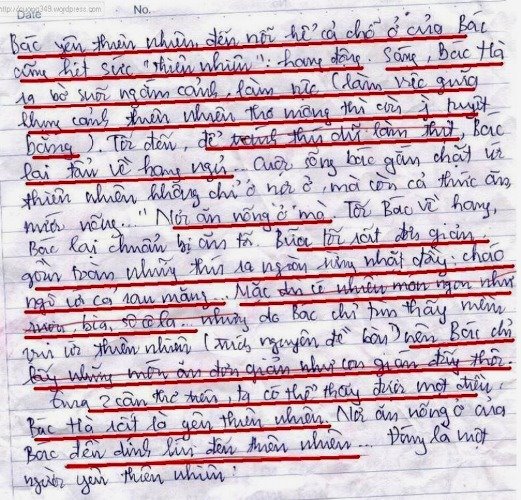 http://cuong349.wordpress.com
Date No.
Bác yêu thiên nhiên đến nỗi kể cả chỗ ở của Bác
cũng hết sức "thiên nhiên": hang động. Sáng, Bác Hồ
ra bờ suối ngắm cảnh, làm việc (làm việc giữa
khung cảnh thiên nhiên thơ mộng thì còn gì tuyệt
bằng). Tối đến, để tránh thú dữ làm thịt, Bác
lại tản về hang ngủ... Cuộc sống bác gắn chặt với
thiên nhiên không chỉ ở nơi ở, mà còn cả thức ăn,
nước uống... "Nơi ăn nống ở" mà. Tối Bác về hang,
Bác lại chuẩn bị ăn tối. Bữa tối rất đơn giản,
gồm toàn những thứ ra ngoài rừng nhặt đầy: cháo
ngô với cả rau măng... Mặc dù có nhiều món ngon như
rượu, bia, sô cô la... nhưng do Bác chỉ tìm thấy niềm
vui với thiên nhiên (trích nguyên đề bài) nên Bác chỉ
lấy những món ăn đơn giản như con gián đấy thôi.
Qua 2 câu thơ trên, ta có thể thấy được một điều,
Bác Hồ rất là yêu thiên nhiên. Nơi ăn nống ở của
Bác đều dính líu đến thiên nhiên... Đúng là một
người yêu thiên nhiên!